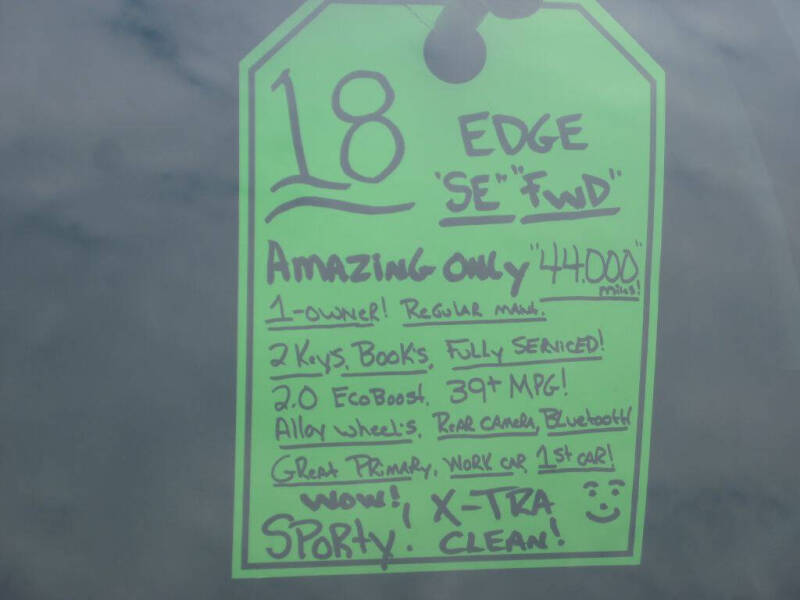 18 EDGE
"SE" "FWD"
AMAZING ONLY "44.000"
miles!
1-OWNER! REGULAR MAINT.
2 KEYS, BOOK'S, FULLY SERVICED!
2.0 ECOBOOST. 39+ MPG!
ALLOY WHEEL'S, REAR CAMERA, BLUETOOTH
GREAT PRIMARY, WORK CAR, 1ST CAR!
WOW! X-TRA
SPORTY! CLEAN!